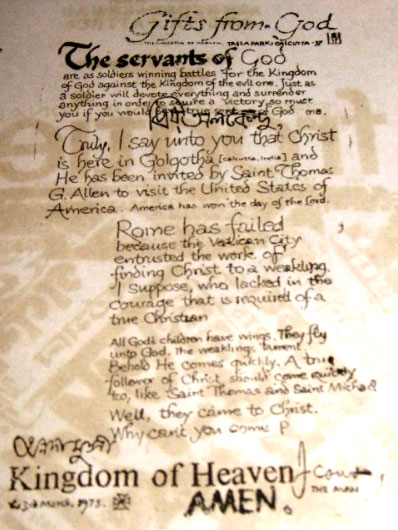 Gifts from God
THE KINGDOM OF HEAVEN, TALLA PARK, CALCUTTA-
The servants of God
are as soldiers winning battles for the Kingdom
of God against the Kingdom of the evil one. Just as
a soldier will devote everything and surrender
anything in order to secure a victory, so must
you if you would true of God.
Truly, I say unto you that Christ
is here in Golgotha [Calcutta, India] and
He has been invited by Saint Thomas
G. Allen to visit the United States of
America. America has won the day of the Lord.
Rome has failed
because the Vatican City
entrusted the work of
finding Christ to a weakling.
I suppose, who lacked in the
courage that is required of a
true Christian
All God's children have wings. They fly
unto God. The weaklings lament.
Behold He comes quickly. A true
follower of Christ should come quickly
too, like Saint Thomas and Saint Michael
Well, they came to Christ.
Why can't you come?
Kingdom of Heaven
THE MAN
March, 1973.
AMEN.